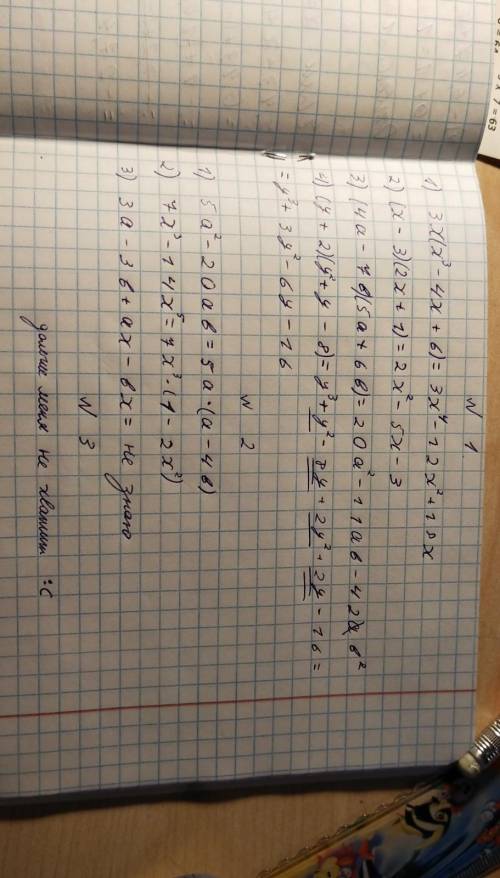 × 7 = 63
N 1
1) 3x(x³ - 4x + 6) = 3x⁴ - 12x² + 18x
2) (x - 3)(2x + 1) = 2x² - 5x - 3
3) (4a - 7b)(5a + 6b) = 20a² - 11ab - 42 b²
4) (y + 2)(y² + y - 8) = y³ + y² - 8y + 2y² + 2y - 16 =
= y³ + 3y² - 6y - 16
N 2
1) 5a² - 20ab = 5a · (a - 4b)
2) 7x³ - 14x⁵ = 7x³ · (1 - 2x²)
3) 3a - 3b + ax - bx = не знаю
N 3
дальше меня не хватит :с